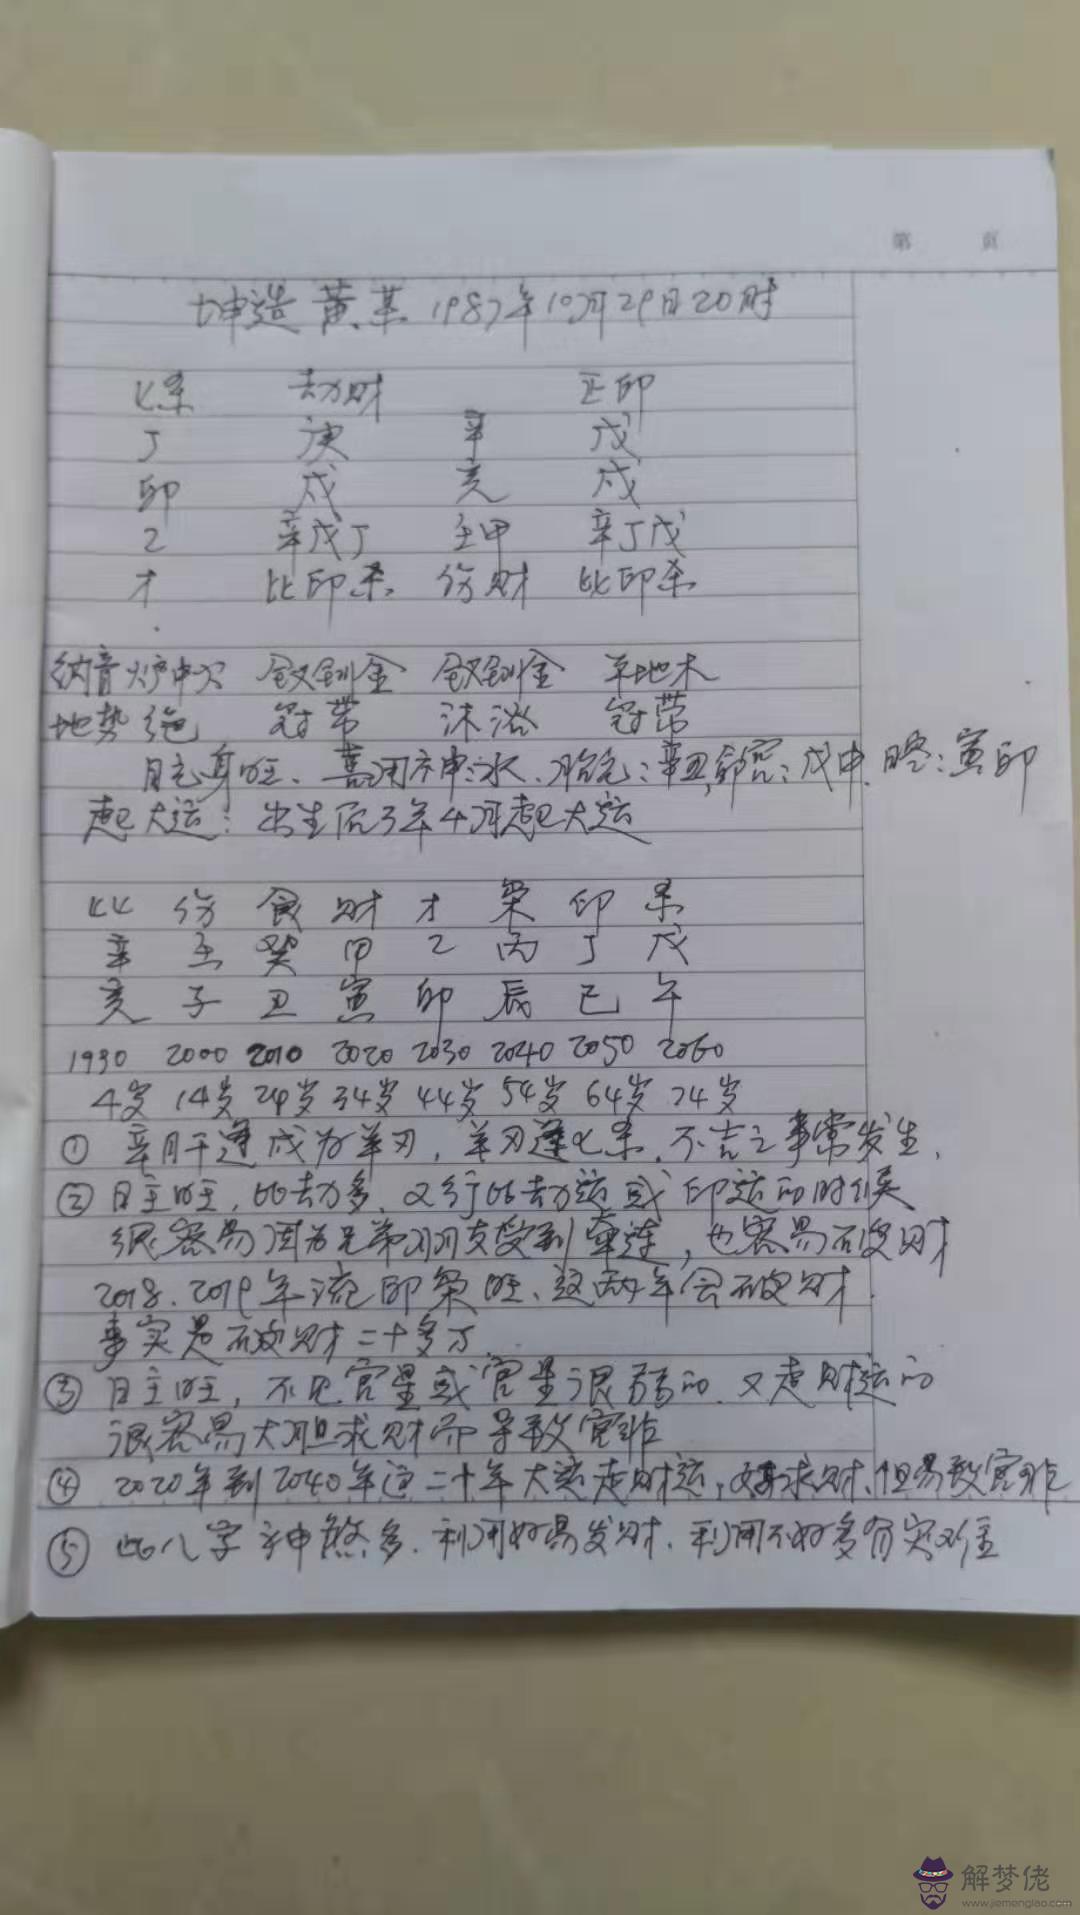 第 页
坤造 黄某 1987年10月29日20时
七杀 劫财 正印
丁 庚 辛 戊
卯 戌 亥 戌
乙 辛戊丁 壬甲 辛丁戊
才 比印杀 伤财 比印杀
纳音 炉中火 钗钏金 钗钏金 平地木
地势 绝 冠带 沐浴 冠带
日元身旺、喜用神:水、胎元:辛丑,命宫:戊申、空:寅卯
起大运:出生后3年4月起大运
比 伤 食 财 才 印 杀
辛 壬 癸 甲 乙 丙 丁 戊
亥 子 丑 寅 卯 辰 巳 午
1990 2000 2010 2020 2030 2040 2050 2060
4岁 14岁 24岁 34岁 44岁 54岁 64岁 74岁
① 辛月干逢戌为羊刃,羊刃逢七杀、不吉之事常发生、
② 日主旺,比劫多、又行比劫运或印运的时候
很容易因为兄弟朋友受到牵连,也容易破财
2018、2019年流印枭旺、这两年会破财.
事实是破财二十多万.
③ 日主旺,不见官星或官星很弱的、又走财运的
很容易大胆求财而导致官非
④ 2020年到2040年这二十年大运走财运,好求财、但易致官非
⑤ 此八字神煞多.利用好易发财、利用不好多有灾难
解梦佬
www.jiemenglao.com